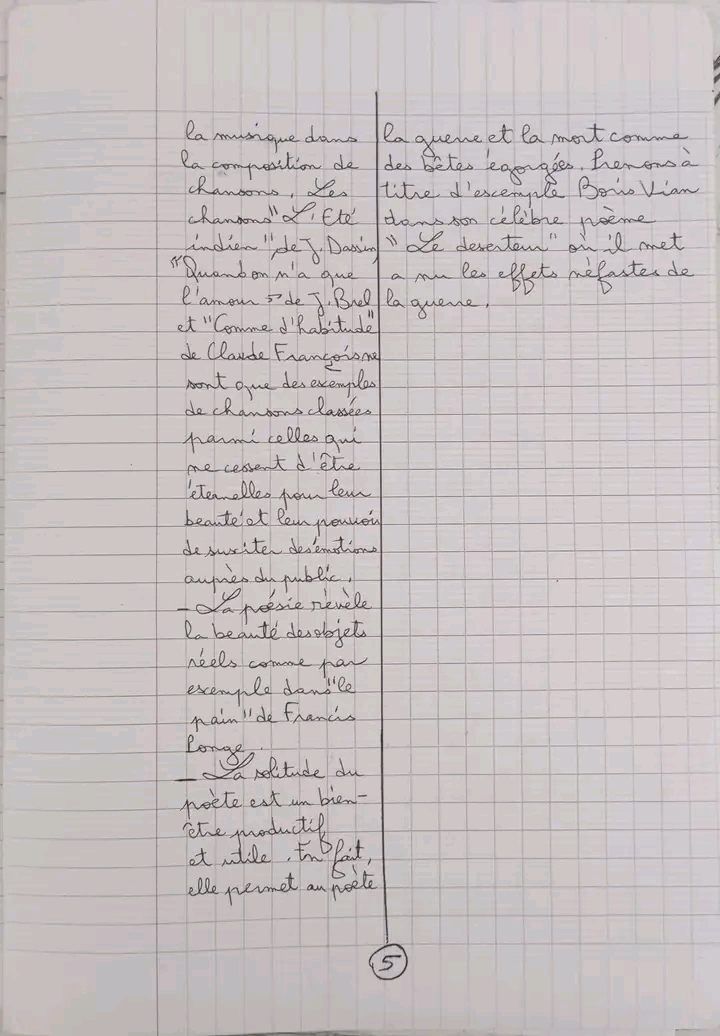 la musique dans
la composition de
chansons. Les
chansons "L'Eté
indien", de J. Dassin,
"Quand on n'a que
l'amour" de J. Brel
et "Comme d'habitude"
de Claude François ne
sont que des exemples
de chansons classées
parmi celles qui
ne cessent d'être
éternelles pour leur
beauté et leur pouvoir
de susciter des émotions
auprès du public.
- La poésie révèle
la beauté des objets
réels comme par
escemple dans "le
pain" de Francis
Ponge.
- La solitude du
poète est un bien-
être productif
et utile. En fait,
elle permet au poète
la guerre et la mort comme
des bêtes égorgées. Prenons à
titre d'escemple Boris Vian
dans son célèbre poème
"Le deserteur" où il met
a nu les effets néfastes de
la guerre.
5